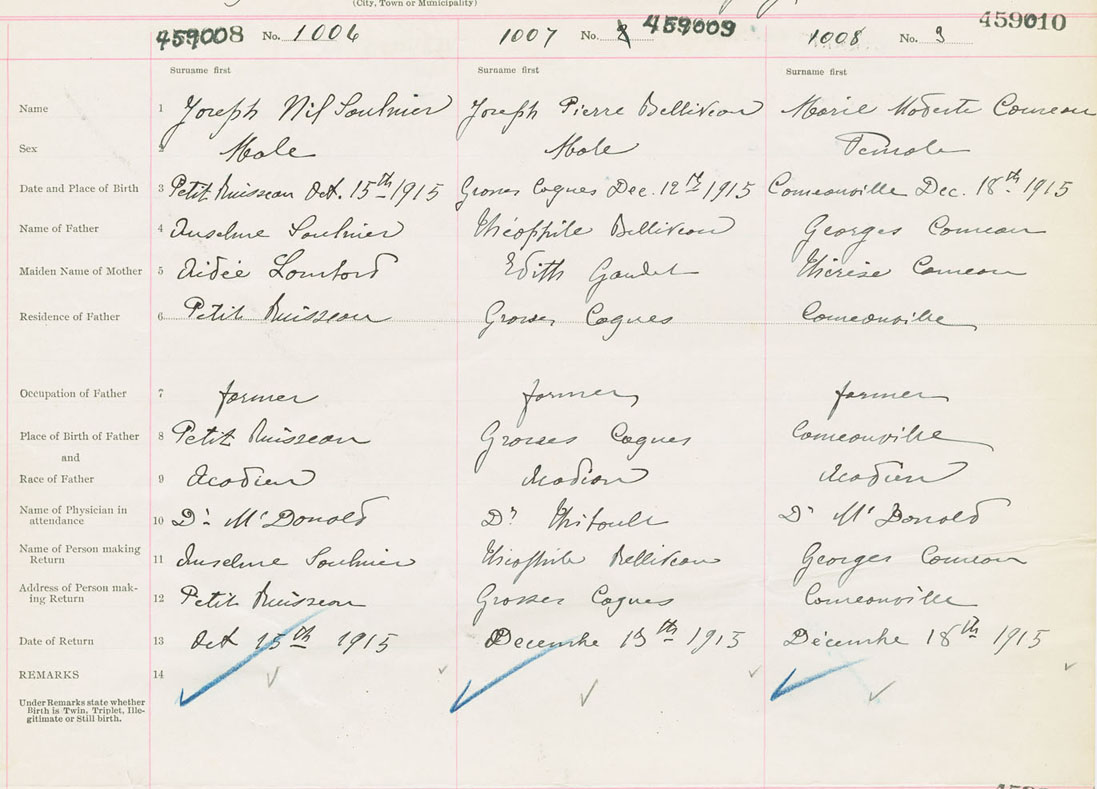 (City, Town or Municipality)
459008 No. 1006 1007 No. 2 459009 1008 No. 3 459010
Surname first Surname first Surname first
Name 1 Joseph Nil Saulnier Joseph Pierre Belliveau Marie Modeste Comeau
Sex 2 Male Male Female
Date and Place of Birth 3 Petit Ruisseau Oct. 15th 1915 Grosses Coques Dec. 12th 1915 Comeauville Dec. 18th 1915
Name of Father 4 Anselme Saulnier Théophile Belliveau Georges Comeau
Maiden Name of Mother 5 Edith Gaudet Thérèse Comeau
Residence of Father 6 Petit Ruisseau Grosses Coques Comeauville
Occupation of Father 7 farmer farmer farmer
Place of Birth of Father 8 Petit Ruisseau Grosses Coques Comeauville
and
Race of Father 9 Acadien Acadien Acadien
Name of Physician in
attendance 10 Dr McDonald Dr Dr McDonald
Name of Person making
Return 11 Anselme Saulnier Théophile Belliveau Georges Comeau
Address of Person mak-
ing Return 12 Petit Ruisseau Grosses Coques Comeauville
Date of Return 13 Oct 15th 1915 Decembre 13th 1915 Décembre 18th 1915
REMARKS 14
Under Remarks state whether
Birth is Twin, Triplet, Ille-
gitimate or Still birth.